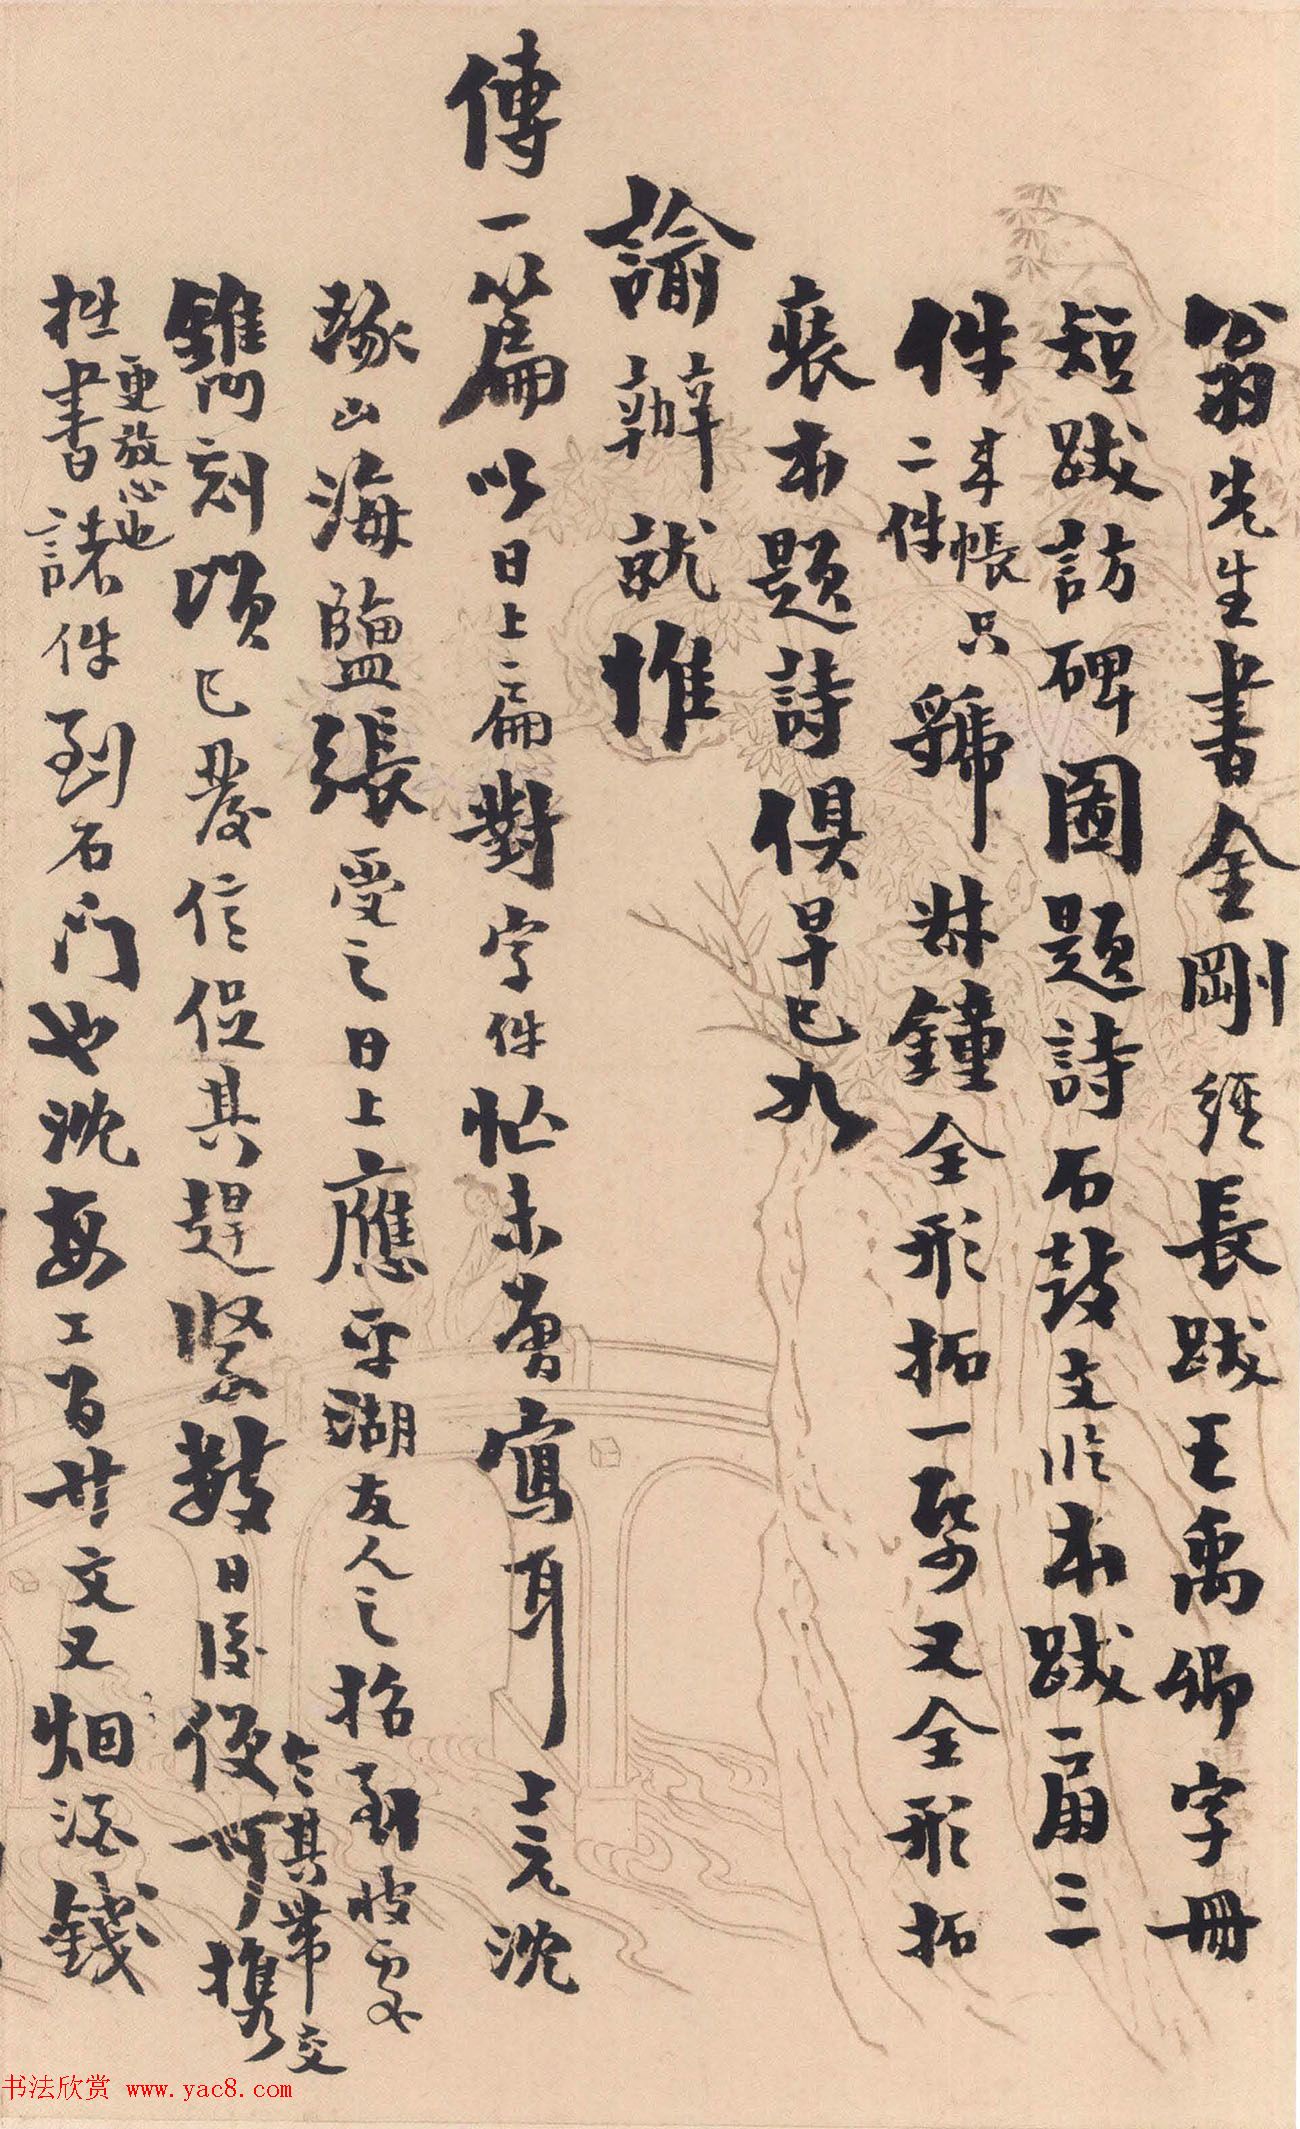 翁先生書金剛經長跋王禹卿字冊
短跋訪碑圖題詩石鼓文臨本跋二扇三
件來帳只二件號叔鐘全形拓一幀又全形拓
裝本題詩俱早已如
諭辦就惟
傳一篇以日上扁對字件忙未曾寫耳上元沈
琢山海鹽張受之日上應平湖友人之招到彼處
鐫刻頃已發信促其趕緊數日後便可攜
令其帶交
更放心也
拙書諸件到石門也沈每工百廿文又烟酒錢
书法欣赏 www.yac8.com